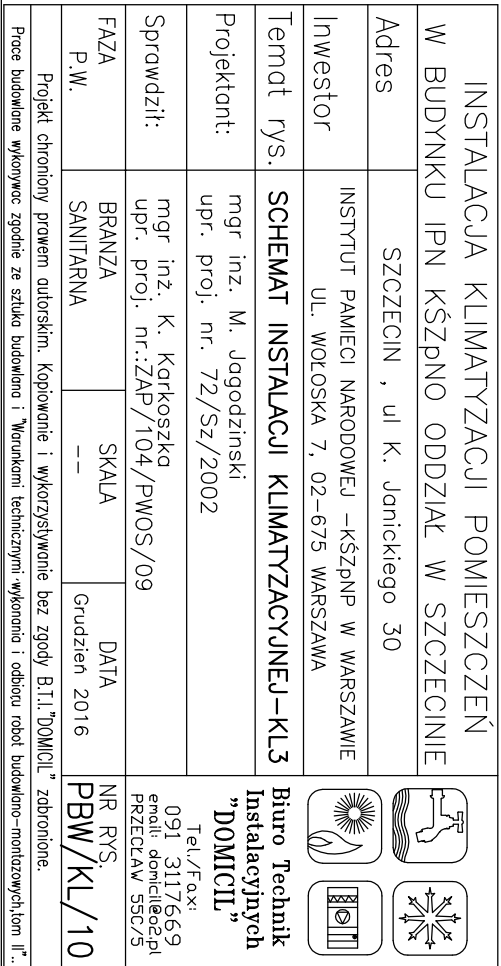 INSTALACJA KLIMATYZACJI POMIESZCZEŃ
W BUDYNKU IPN KŚZpNO ODDZIAŁ W SZCZECINIE
Adres
SZCZECIN , ul K. Janickiego 30
Inwestor
INSTYTUT PAMIECI NARODOWEJ –KŚZpNP W WARSZAWIE
UL. WOŁOSKA 7, 02–675 WARSZAWA
Temat rys.
SCHEMAT INSTALACJI KLIMATYZACYJNEJ–KL3
Projektant:
mgr inz. M. Jagodzinski
upr. proj. nr. 72/Sz/2002
Sprawdził:
mgr inż. K. Karkoszka
upr. proj. nr.:ZAP/104/PWOS/09
Biuro Technik
Instalacyjnych
"DOMICIL"
Tel./Fax:
091 3117669
email: domicil@o2.pl
PRZECŁAW 55C/5
FAZA
P.W.
BRANZA
SANITARNA
SKALA
––
DATA
Grudzień 2016
NR RYS.
PBW/KL/10
Projekt chroniony prawem autorskim. Kopiowanie i wykorzystywanie bez zgody B.T.I."DOMICIL" zabronione.
Prace budowlane wykonywac zgodnie ze sztuka budowlana i "Warunkami technicznymi wykonania i odbioru robot budowlano–montazowych,tom II"..